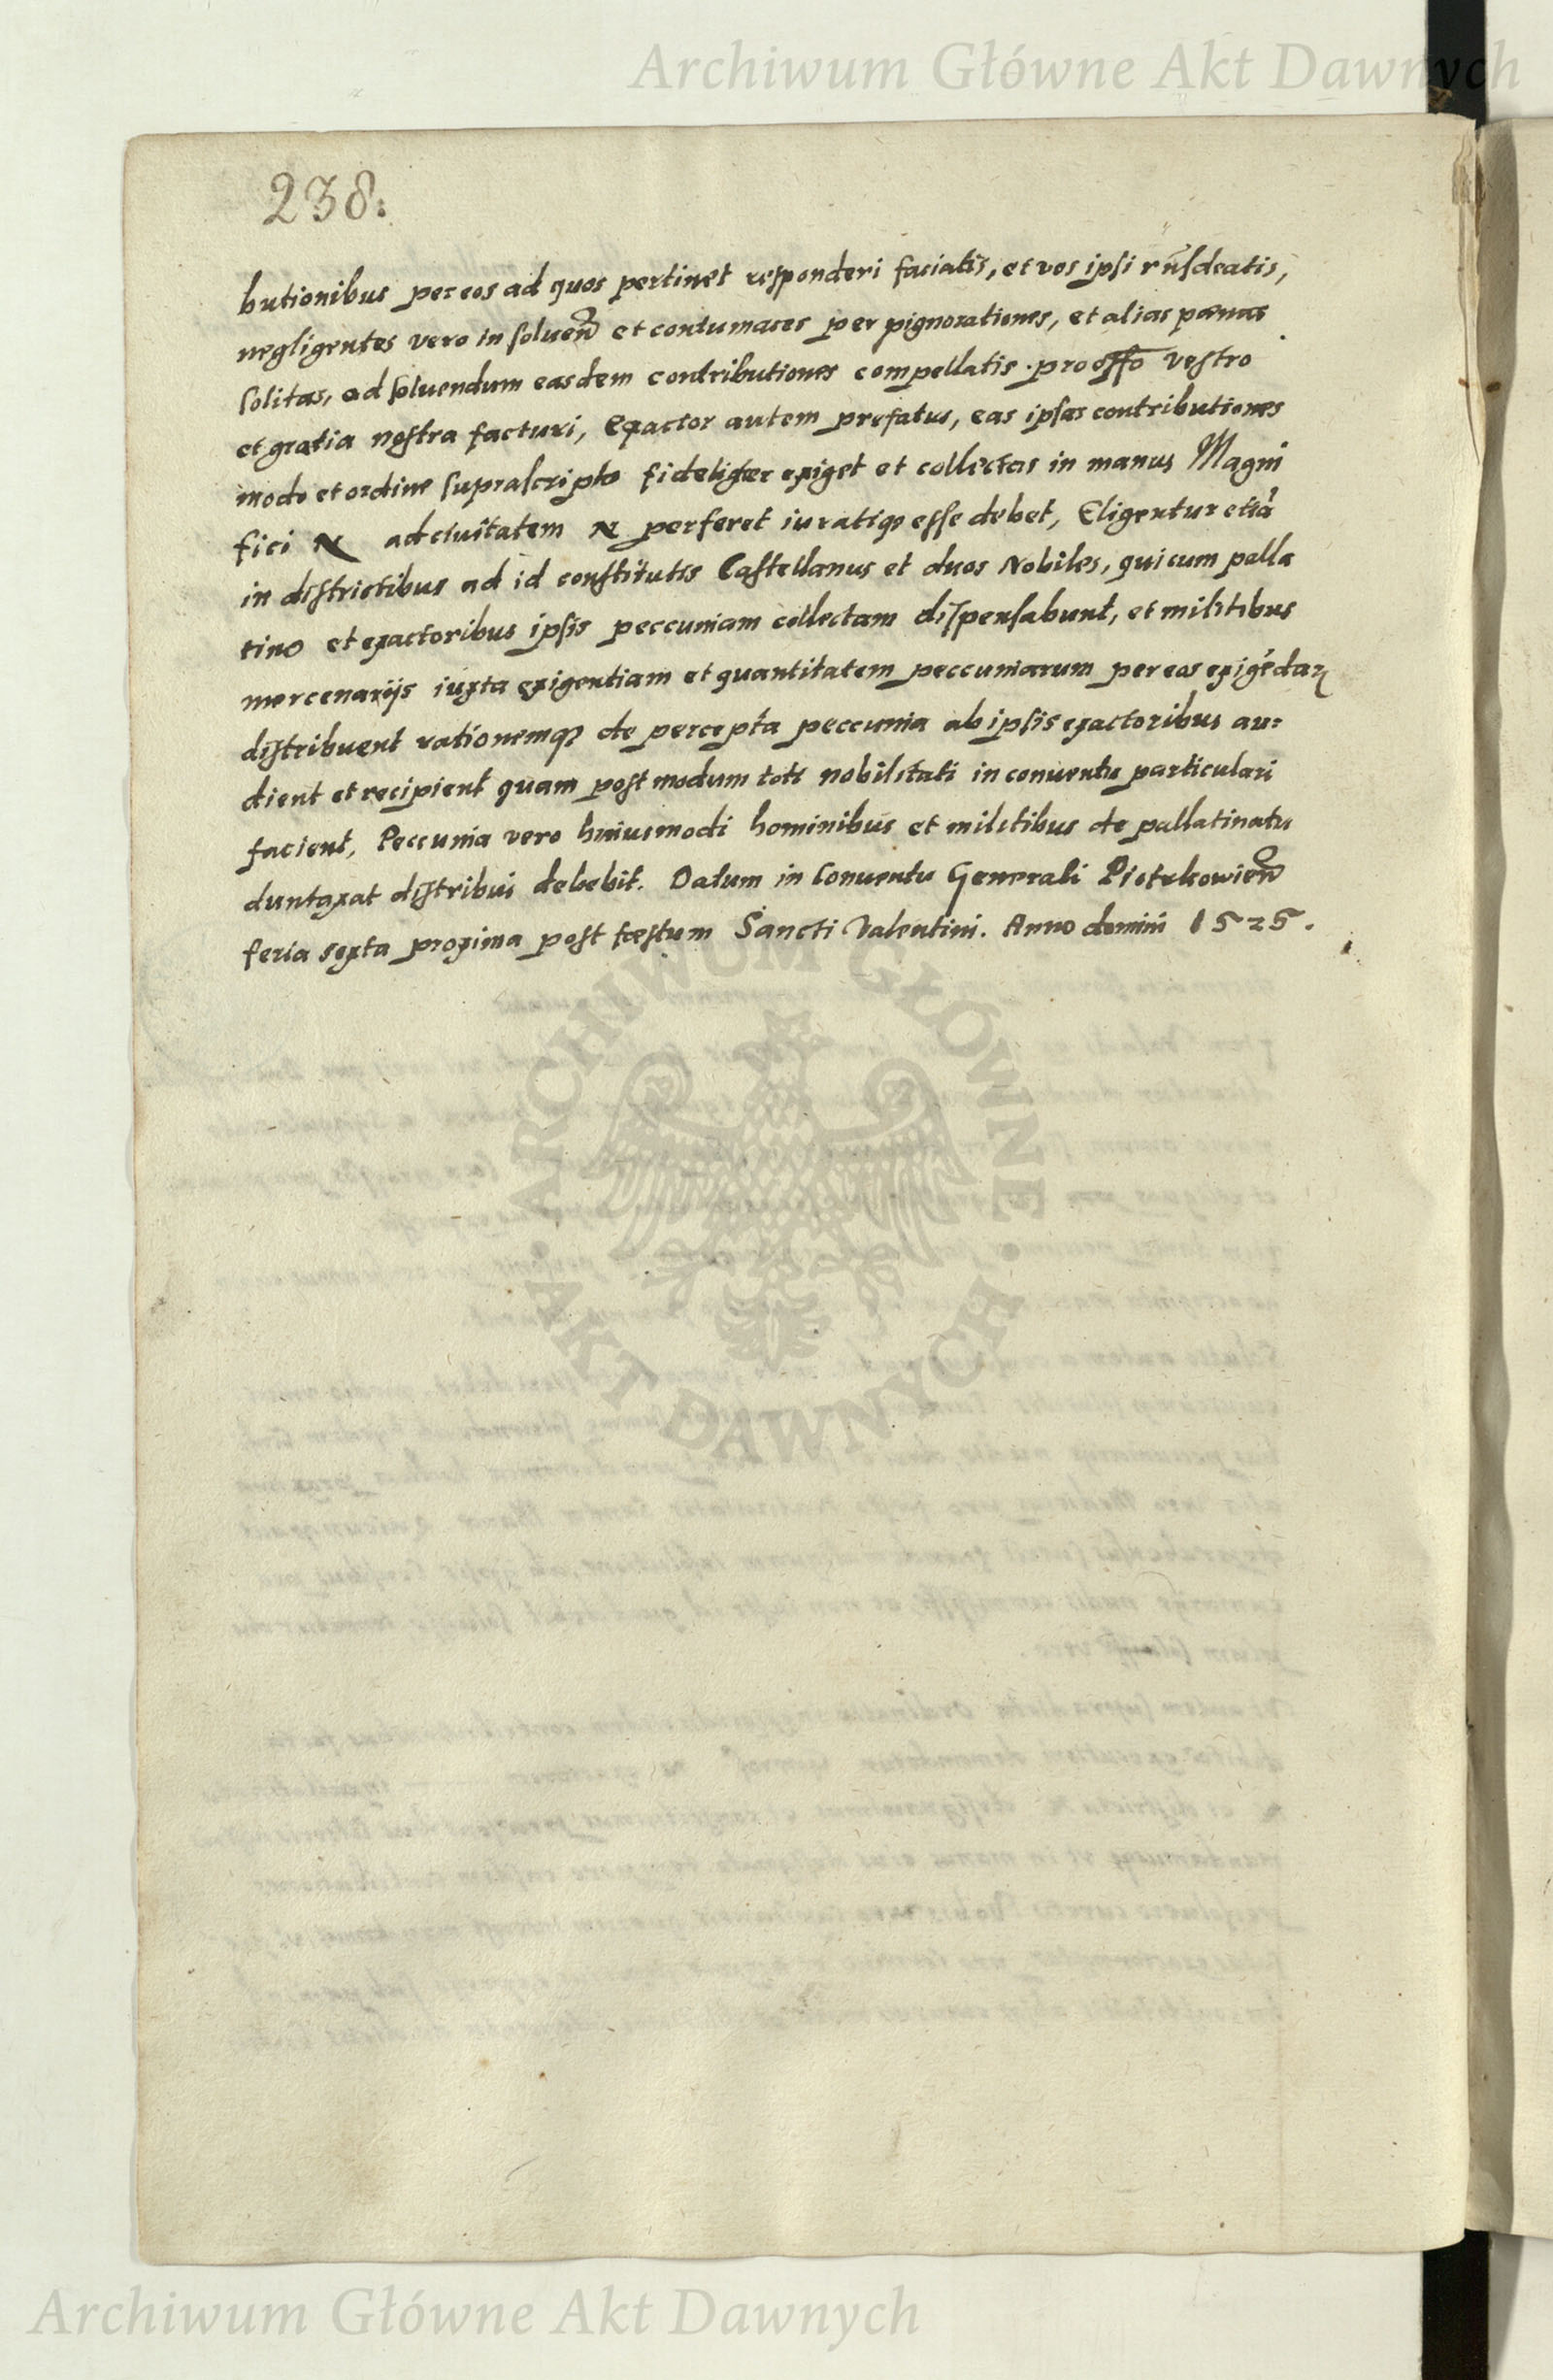 Archiwum Główne Akt Dawnych
238.
butionibus per eos ad quos pertinet responderi faciatis, et vos ipsi rn̄sdeatis,
negligentes vero in soluen̄ et contumaces per pignorationes, et alias pœnas
solitas, ad soluendum easdem contributiones compellatis. pro offo vestro
et gratia nostra facturi, Exactor autem prefatus, eas ipsas contributiones
modo et ordine suprascripto fideliter exiget et collectas in manus Magni
fici N ad ciuitatem N perferet iuratiqȝ esse debet, Eligentur etiā
in districtibus ad id constitutis Castellanus et duos Nobiles, qui cum palla
tino et exactoribus ipsis peccuniam collectam dispensabunt, et militibus
mercenarijs iuxta exigentiam et quantitatem peccuniarum per eos exigēdaꝝ
distribuent rationemqȝ de percepta peccunia ab ipsis exactoribus au=
dient et recipient quam post modum toti nobilitati in conuentu particulari
facient, Peccunia vero huiusmodi hominibus et militibus de pallatinatu
duntaxat distribui debebit. Datum in Conuentu Generali Piotrkowien̄
feria sexta proxima post fœstum Sancti Valentini. Anno domini 1525.
ARCHIWUM GŁÓWNE
AKT DAWNYCH
Archiwum Główne Akt Dawnych